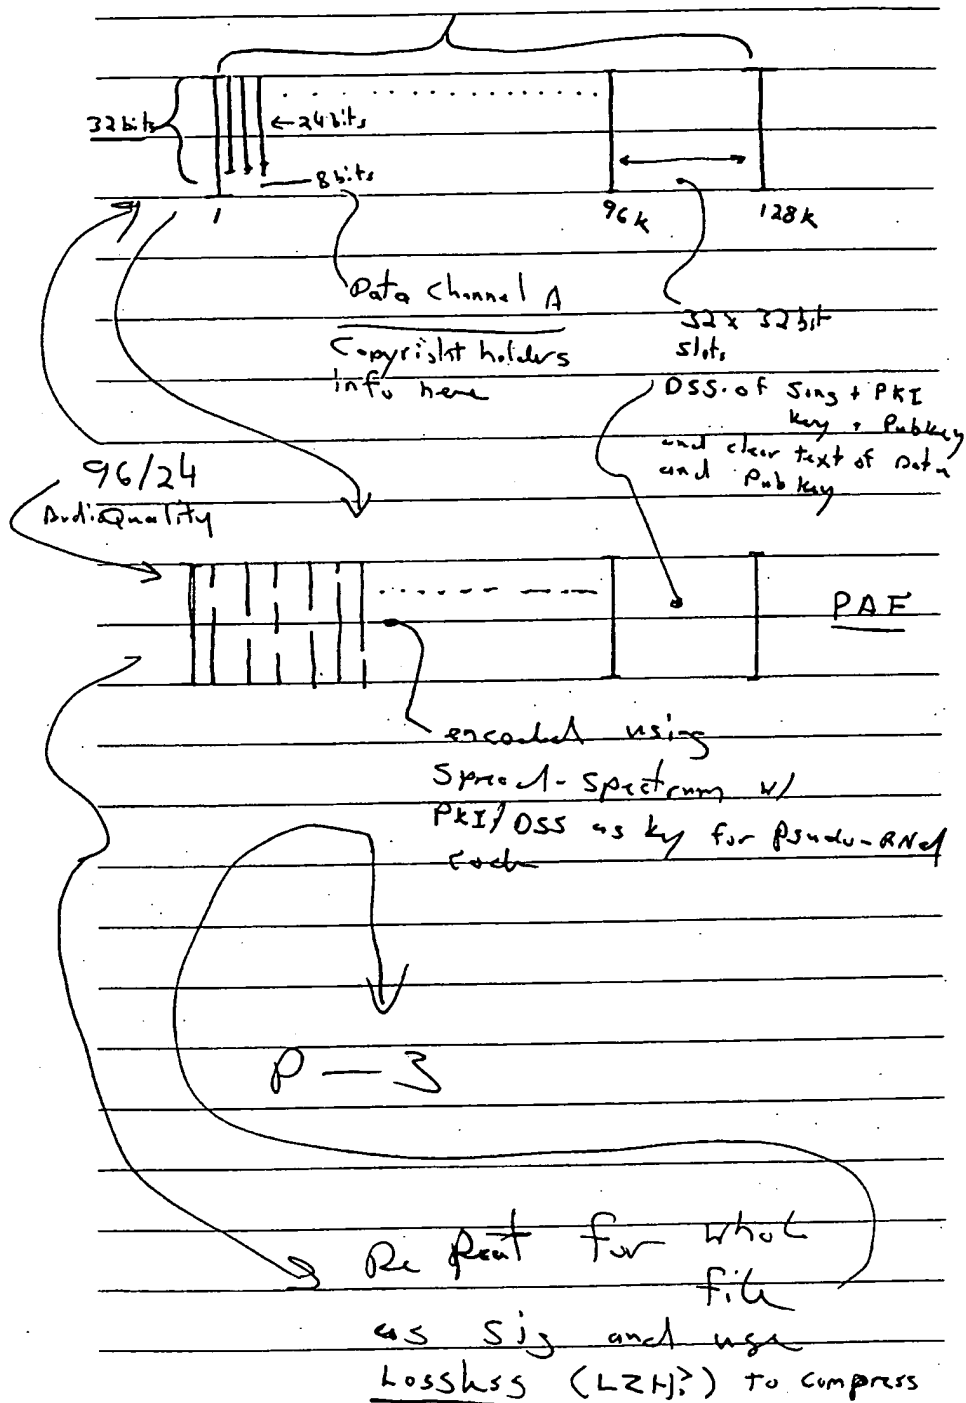 32 bits
←24 bits
8 bits
1
96k
128k
Data Channel A
Copyright holders
info here
32 x 32 bit
slots
DSS of Song + PKI
key + Pubkey
and clear text of Data
and Pub key
96/24
AudioQuality
PAF
encoded using
Spread-Spectrum w/
PKI/DSS as ky for Psudo-RNd
code
P — 3
Repeat for whole
file
as sig and use
Lossless (LZH?) to compress